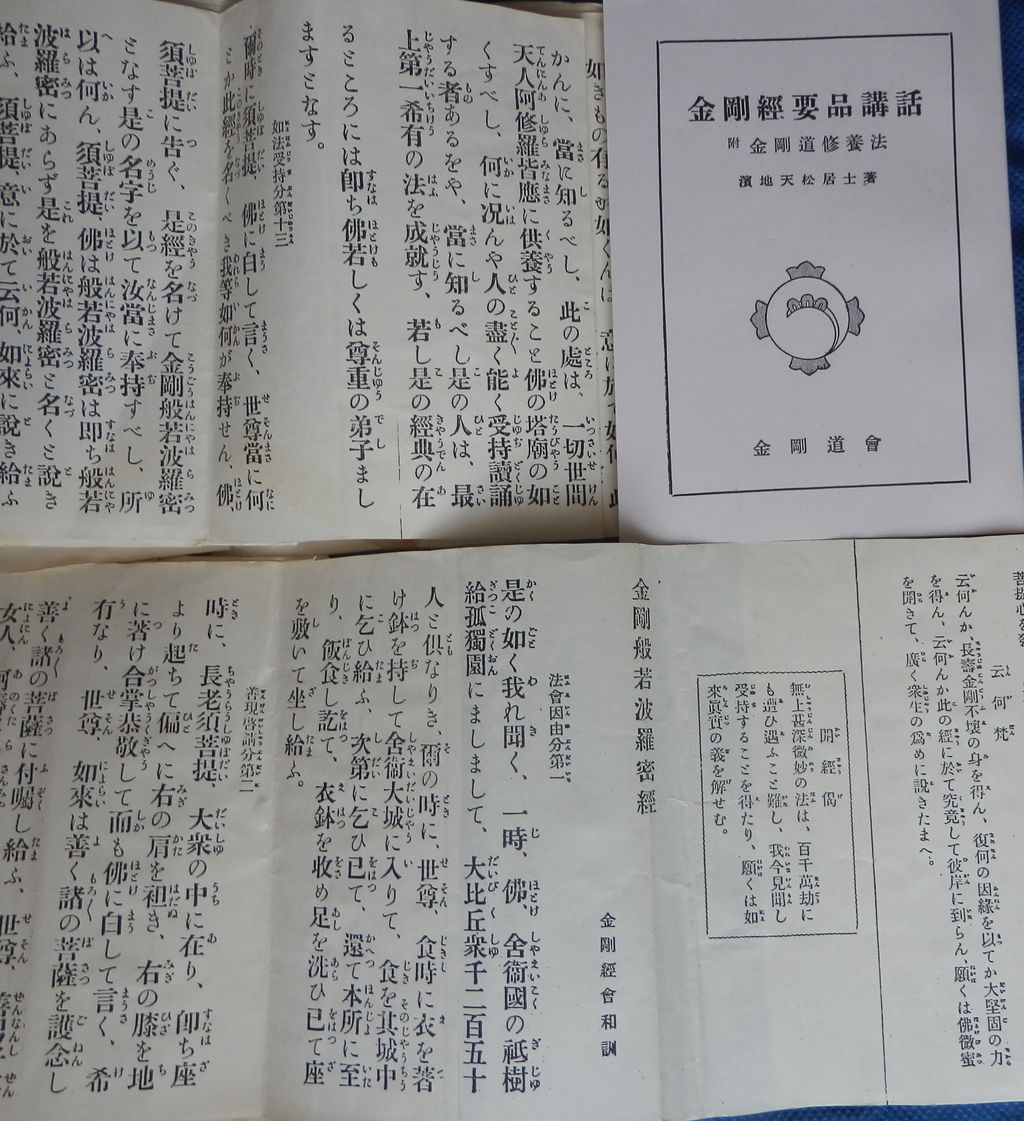 金剛經要品講話
附 金剛道修養法
濱地天松居士著
金剛道會
かんに、當に知るべし、此の處は、一切世間
天人阿修羅皆應に供養すること佛の塔廟の如
くすべし、何に況んや人の盡く能く受持讀誦
する者あるをや、當に知るべし是の人は、最
上第一希有の法を成就す、若し是の經典の在
るところには卽ち佛若しくは尊重の弟子まし
ますとなす。
如法受持分第十三
爾時に須菩提、佛に白して言く、世尊當に何
とか此經を名くべき我等如何が奉持せん、佛、
須菩提に告ぐ、是經を名けて金剛般若波羅密
となす是の名字を以て汝當に奉持すべし、所
以は何ん、須菩提、佛は般若波羅密は卽ち般若
波羅密にあらず是を般若波羅密と名くと說き
給ふ、須菩提、意に於て云何、如來に說き給ふ
菩提心を
云何梵
云何んか、長壽金剛不壞の身を得ん、復何の因緣を以てか大堅固の力
を得ん、云何んか此の經に於て究竟して彼岸に到らん、願くは佛微蜜
を開きて、廣く衆生の爲めに說きたまへ。
開經偈
無上甚深微妙の法は、百千萬劫に
も遭ひ遇ふこと難し、我今見聞し
受持することを得たり、願くは如
來眞實の義を解せむ。
金剛般若波羅密經
金剛經會和訓
法會因由分第一
是の如く我れ聞く、一時、佛、舍衞國の祗樹
給孤獨園にましまして、大比丘衆千二百五十
人と俱なりき、爾の時に、世尊、食時に衣を著
け鉢を持して舍衞大城に入りて、食を其城中
に乞ひ給ふ、次第に乞ひ已て、還て本所に至
り、飯食し訖て、衣鉢を收め足を洗ひ已て座
を敷いて坐し給ふ。
善現啓請分第二
時に、長老須菩提、大衆の中に在り、卽ち座
より起ちて偏へに右の肩を袒き、右の膝を地
に著け合掌恭敬して而も佛に白して言く、希
有なり、世尊、如來は善く諸の菩薩を護念し
善く諸の菩薩に付囑し給ふ、世尊、
女人、